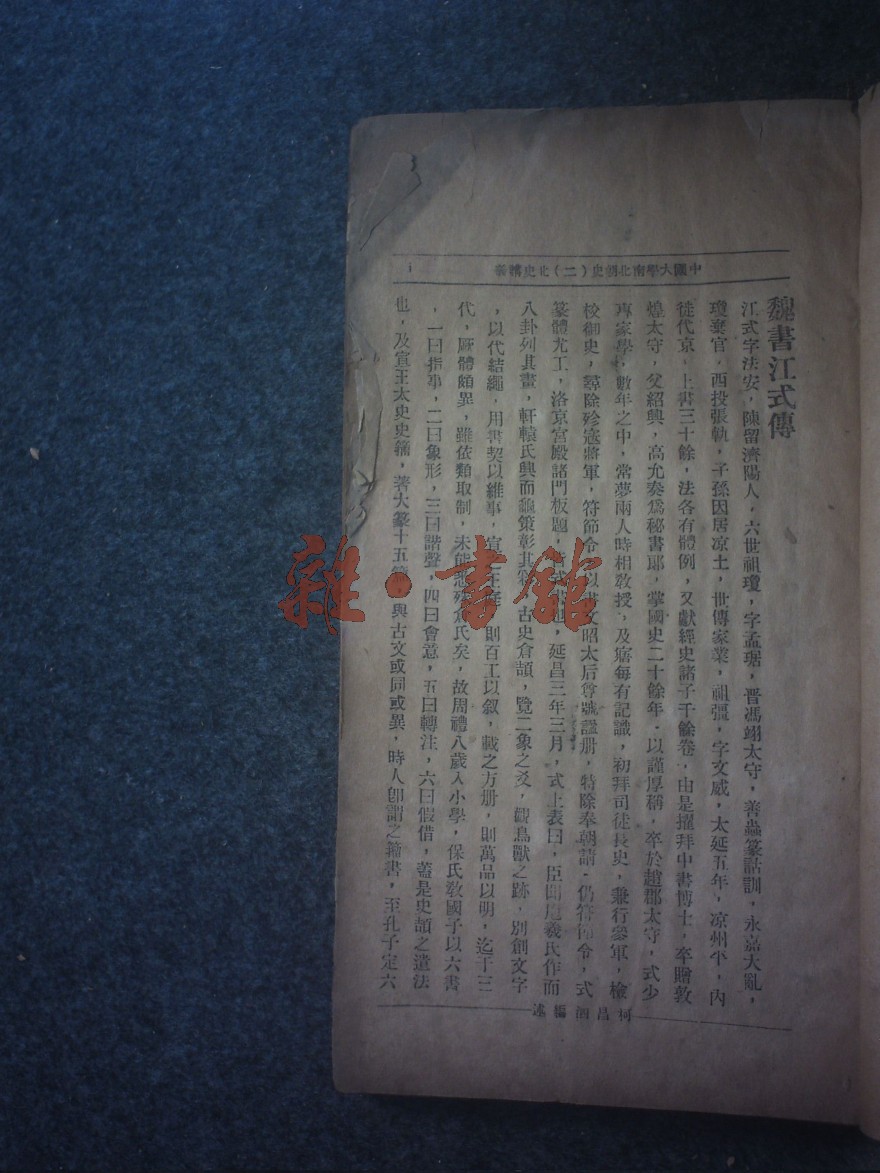 中國大學南北朝史（二）北史講義
一
魏書江式傳
江式字法安，陳留濟陽人，六世祖瓊，字孟琚，晋馮翊太守，善蟲篆詁訓，永嘉大亂，
瓊棄官，西投張軌，子孫因居凉土，世傳家業，祖彊，字文威，太延五年，凉州平，内
徒代京，上書三十餘，法各有體例，又獻經史諸子千餘卷，由是擢拜中書博士，卒贈敦
煌太守，父紹興，高允奏爲秘書郎，掌國史二十餘年，以謹厚稱，卒於趙郡太守，式少
專家學，數年之中，常夢兩人時相敎授，及寤每有記識，初拜司徒長史，兼行參軍，檢
校御史，尋除殄寇將軍，符節令，以書文昭太后尊號諡册，特除奉朝請，仍符節令，式
篆體尤工，洛京宫殿諸門板題，皆式書也，延昌三年三月，式上表曰，臣聞庖羲氏作而
八卦列其畫，軒轅氏興而龜策彰其彩，古史倉頡，覽二象之爻，觀鳥獸之跡，別創文字
，以代結繩，用書契以維事，宣之王庭，則百工以叙，載之方册，則萬品以明，迄于三
代，厥體頗異，雖依類取制，未能悉殊倉氏矣，故周禮八歲入小學，保氏敎國子以六書
，一曰指事，二曰象形，三曰諧聲，四曰會意，五曰轉注，六曰假借，蓋是史頡之遺法
也，及宣王太史史籀，著大篆十五篇，與古文或同或異，時人卽謂之籀書，至孔子定六
柯昌泗編述
雜·書館